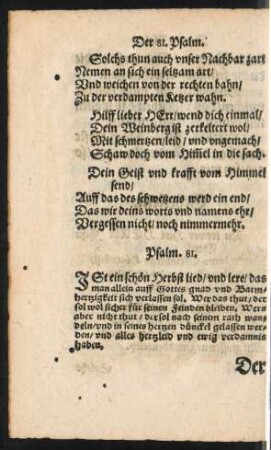 Der 81. Psalm.
Solchs thun auch vnser Nachbar zart
Nemen an sich ein seltzam art/
Vnd weichen von der rechten bahn/
Zu der verdampten Ketzer wahn.
Hilff lieber HErr/wend dich einmal/
Dein Weinberg ist zerkeltert wol/
Mit schmertzen/leid/vnd vngemach/
Schaw doch vom Him̃el in die sach.
Dein Geist vnd krafft vom Himmel
send/
Auff das des schwetzens werd ein end/
Das wir deins worts vnd namens ehr/
Vergessen nicht/noch nimmermehr.
Psalm. 81.
ISt ein schön Herbst lied/vnd lere/das
man allein auff Gottes gnad vnd Barm-
hertzigkeit sich verlassen sol. Wer das thut/der
sol wol sicher für seinen Feinden bleiben. Wers
aber nicht thut/der sol nach seinem rath wan-
deln/vnd in seines hertzen dünckel gelassen wer-
den/vnd alles hertzleid vnd ewig verdamnis
haben.
Der